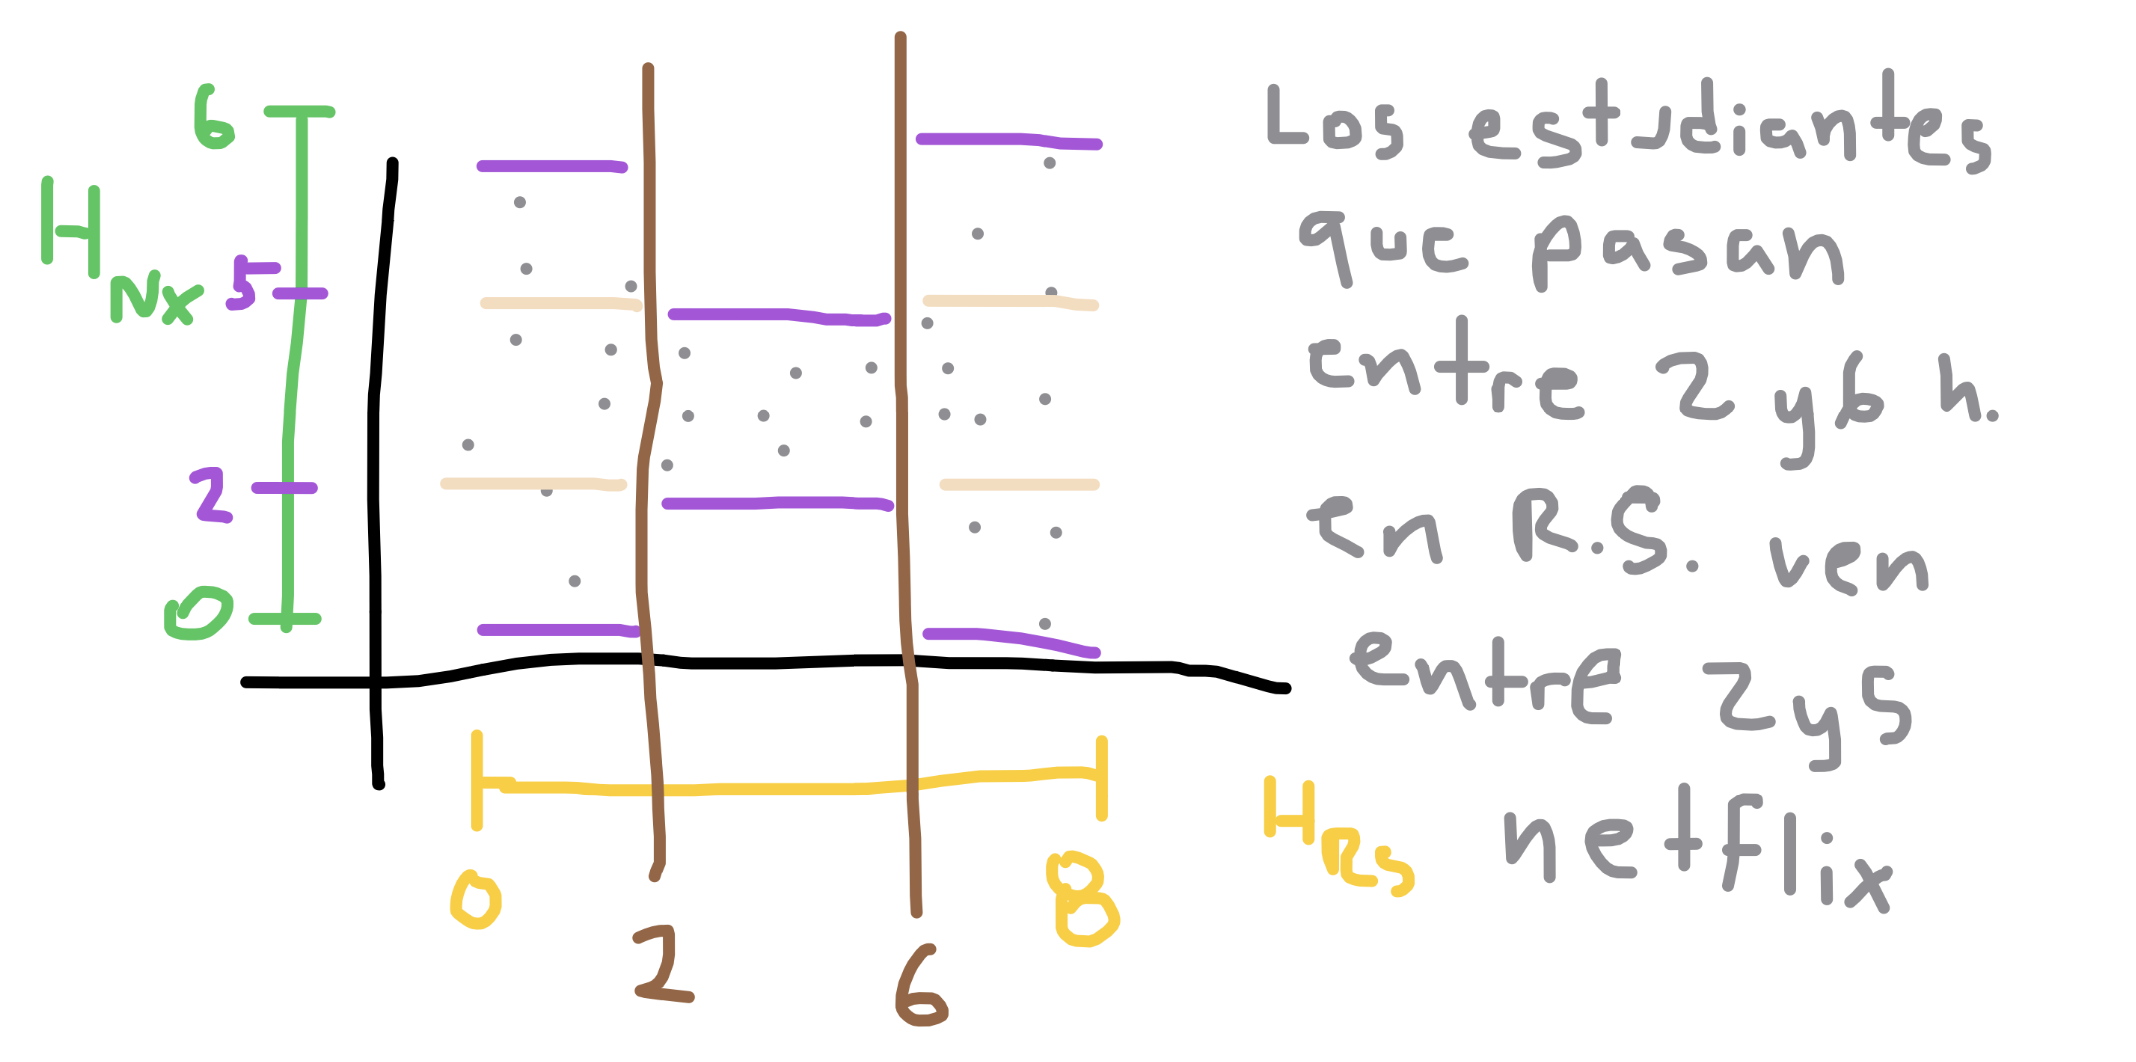 6
H
Nx
5
2
0
0
2
6
8
H
RS
Los estudiantes
que pasan
entre 2 y 6 h.
en R.S. ven
entre 2 y 5
netflix